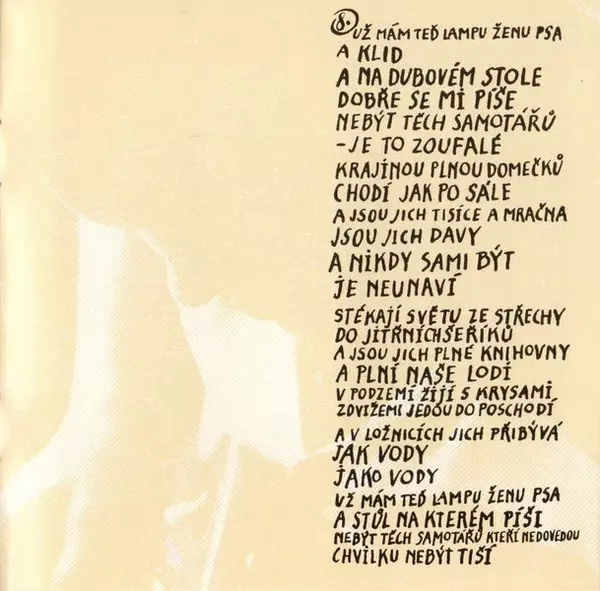 8.
UŽ MÁM TEĎ LAMPU ŽENU PSA
A KLID
A NA DUBOVÉM STOLE
DOBŘE SE MI PÍŠE
NEBÝT TĚCH SAMOTÁŘŮ
-JE TO ZOUFALÉ
KRAJÍNOU PLNOU DOMEČKŮ
CHODÍ JAK PO SÁLE
A JSOU JICH TISÍCE A MRAČNA
JSOU JICH DAVY
A NIKDY SAMI BÝT
JE NEUNAVÍ
STÉKAJÍ SVĚTU ZE STŘECHY
DO JITŘNÍCH ŠEŘÍKŮ
A JSOU JICH PLNÉ KNIHOVNY
A PLNÍ NAŠE LODÍ
V PODZEMÍ ŽIJÍ S KRYSAMI
ZDVIŽEMI JEDOU DO POSCHODÍ
A V LOŽNICÍCH JICH PŘIBÝVÁ
JAK VODY
JAKO VODY
UŽ MÁM TEĎ LAMPU ŽENU PSA
A STŮL NA KTERÉM PÍŠI
NEBÝT TĚCH SAMOTÁŘŮ KTEŘÍ NEDOVEDOU
CHVILKU NEBÝT TIŠÍ